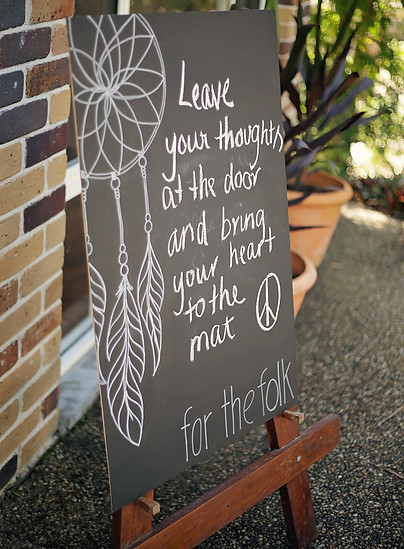 Leave
your thoughts
at the door
and bring
your heart
to the
mat
for the folk